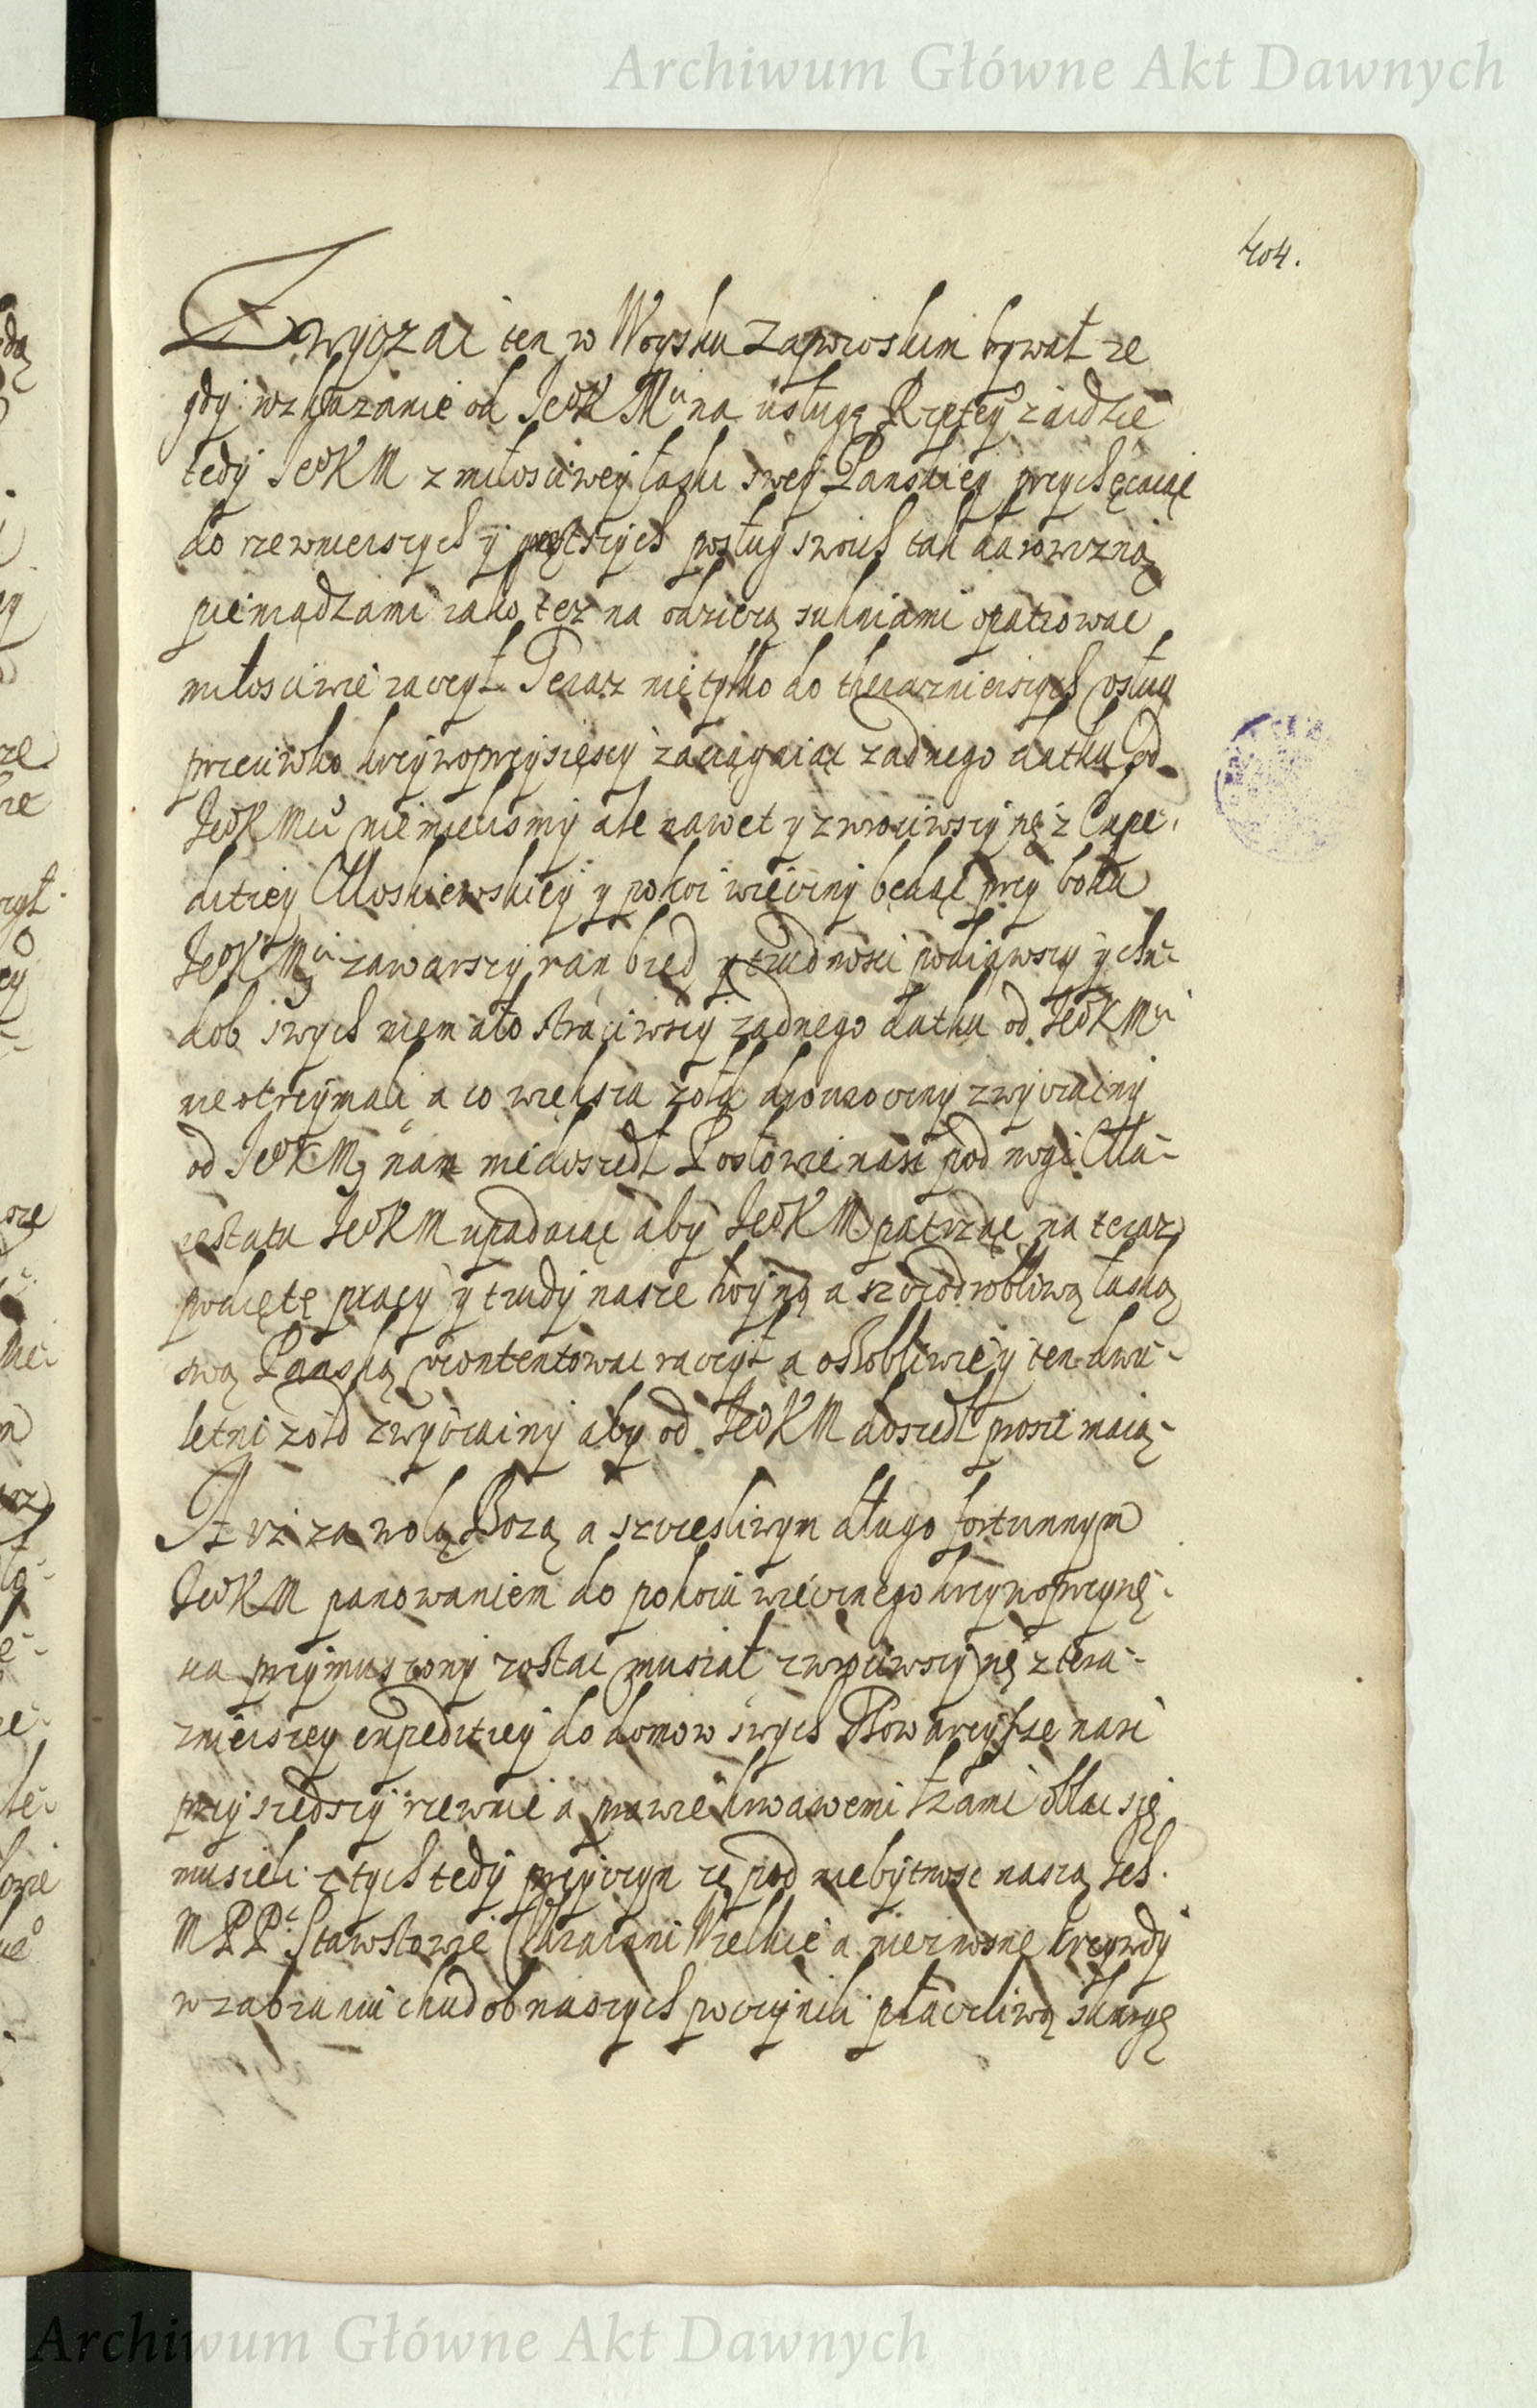 Archiwum Główne Akt Dawnych
404.
Zwyczai ten w Woysku Zaporoskim bywał ze
gdy wzkazanie od JeoK Mci na usługę Rzptey zaidzie
tedy JeoKM z miłosciwey łaski swey Panskiey przychęcaiąc
do rzewnieiszych y prętszych posług swoich tak darowizną
pieniądzami iako tez na odzierz sukniami opatrowac
miłosciwie raczył Teraz nie tylko do theraznieiszych posług
przeciwko krzywoprzysięscy zaciągaiąc zadnego datku od
JeoKMci nie mielismy ale nawet y zwrociwszy się z Expe-
ditiey Moskiewskiey y pokoi wieczny będąc przy boku
JeoKMci zawarszy ran bied y trudnosci podiąwszy y chu-
dob swych niemało straciwszy zadnego datku od JeoKMci
nie otrzymali a co większa zołd dworoczny zwyczainy
od JeoKMci nam nie doszedł Posłowie nasi pod nogi Ma-
iestatu JeoKM upadaiąc aby JeoKM patrząc na teraz
podięte pracy y trudy nasze hoyną a szczodrobliwą łaską
swą Panską ucontentowac raczył a ossobliwie y ten dwu-
letni zołd zwyczainy aby od JeoKM doszedł prosic maią-
A iz za wolą Bozą a szczesliwym długo fortunnym
JeoKM panowaniem do pokoiu wiecznego krzywoprzysię-
sca przymuszony zostac musiał zwrociwszy się z tera-
znieiszey expeditiey do domow swych Towarzysze nasi
przyszedszy rzewnie a prawie krwawemi łzami oblac się
musieli z tych tedy przyczyn ze pod niebytnosc naszą Ich
M PP Starostowie Ukrainni Wielkie a nieznosne krzywdy
w zabraniu chudob naszych poczynili płaczliwą skargę
Archiwum Główne Akt Dawnych